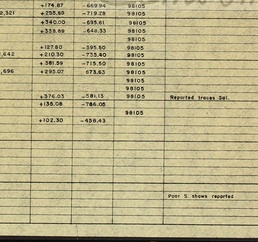 +174.87 -669.94 98105
2,321 +255.69 -719.28 98105
+340.00 -695.61 98105
+339.89 -648.33 98105
+127.80 -595.80 98105
,642 +210.30 -735.40 98105
+381.59 -715.50 98105
,696 +295.07 673.63 98105
98105
98105
+376.03 -581.13 98105 Reported traces Sal.
+136.08 -786.08
98105
+102.30 -438.43
Poor % shows reported